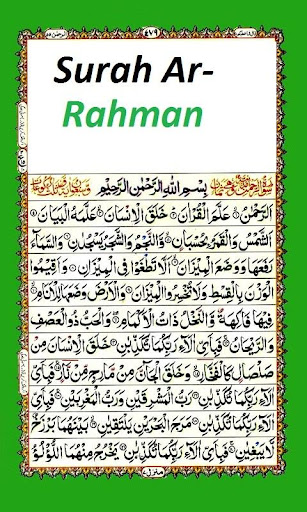 ۴۷۹
Surah Ar-
Rahman
بِسْمِ اللهِ الرَّحْمٰنِ الرَّحِيْمِ
اَلرَّحْمٰنُ عَلَّمَ الْقُرْاٰنَ خَلَقَ الْاِنْسَانَ عَلَّمَهُ الْبَيَانَ
اَلشَّمْسُ وَالْقَمَرُ بِحُسْبَانٍ وَّالنَّجْمُ وَالشَّجَرُ يَسْجُدٰنِ وَالسَّمَآءَ
رَفَعَهَا وَوَضَعَ الْمِيْزَانَ اَلَّا تَطْغَوْا فِي الْمِيْزَانِ وَاَقِيْمُوا
الْوَزْنَ بِالْقِسْطِ وَلَا تُخْسِرُوا الْمِيْزَانَ وَالْاَرْضَ وَضَعَهَا لِلْاَنَامِ
فِيْهَا فَاكِهَةٌ وَّالنَّخْلُ ذَاتُ الْاَكْمَامِ وَالْحَبُّ ذُو الْعَصْفِ
وَالرَّيْحَانُ فَبِاَيِّ اٰلَآءِ رَبِّكُمَا تُكَذِّبٰنِ خَلَقَ الْاِنْسَانَ مِنْ
صَلْصَالٍ كَالْفَخَّارِ وَخَلَقَ الْجَآنَّ مِنْ مَّارِجٍ مِّنْ نَّارٍ فَبِاَيِّ
اٰلَآءِ رَبِّكُمَا تُكَذِّبٰنِ رَبُّ الْمَشْرِقَيْنِ وَرَبُّ الْمَغْرِبَيْنِ فَبِاَيِّ
اٰلَآءِ رَبِّكُمَا تُكَذِّبٰنِ مَرَجَ الْبَحْرَيْنِ يَلْتَقِيٰنِ بَيْنَهُمَا بَرْزَخٌ
لَّا يَبْغِيٰنِ فَبِاَيِّ اٰلَآءِ رَبِّكُمَا تُكَذِّبٰنِ يَخْرُجُ مِنْهُمَا اللُّؤْلُؤُ